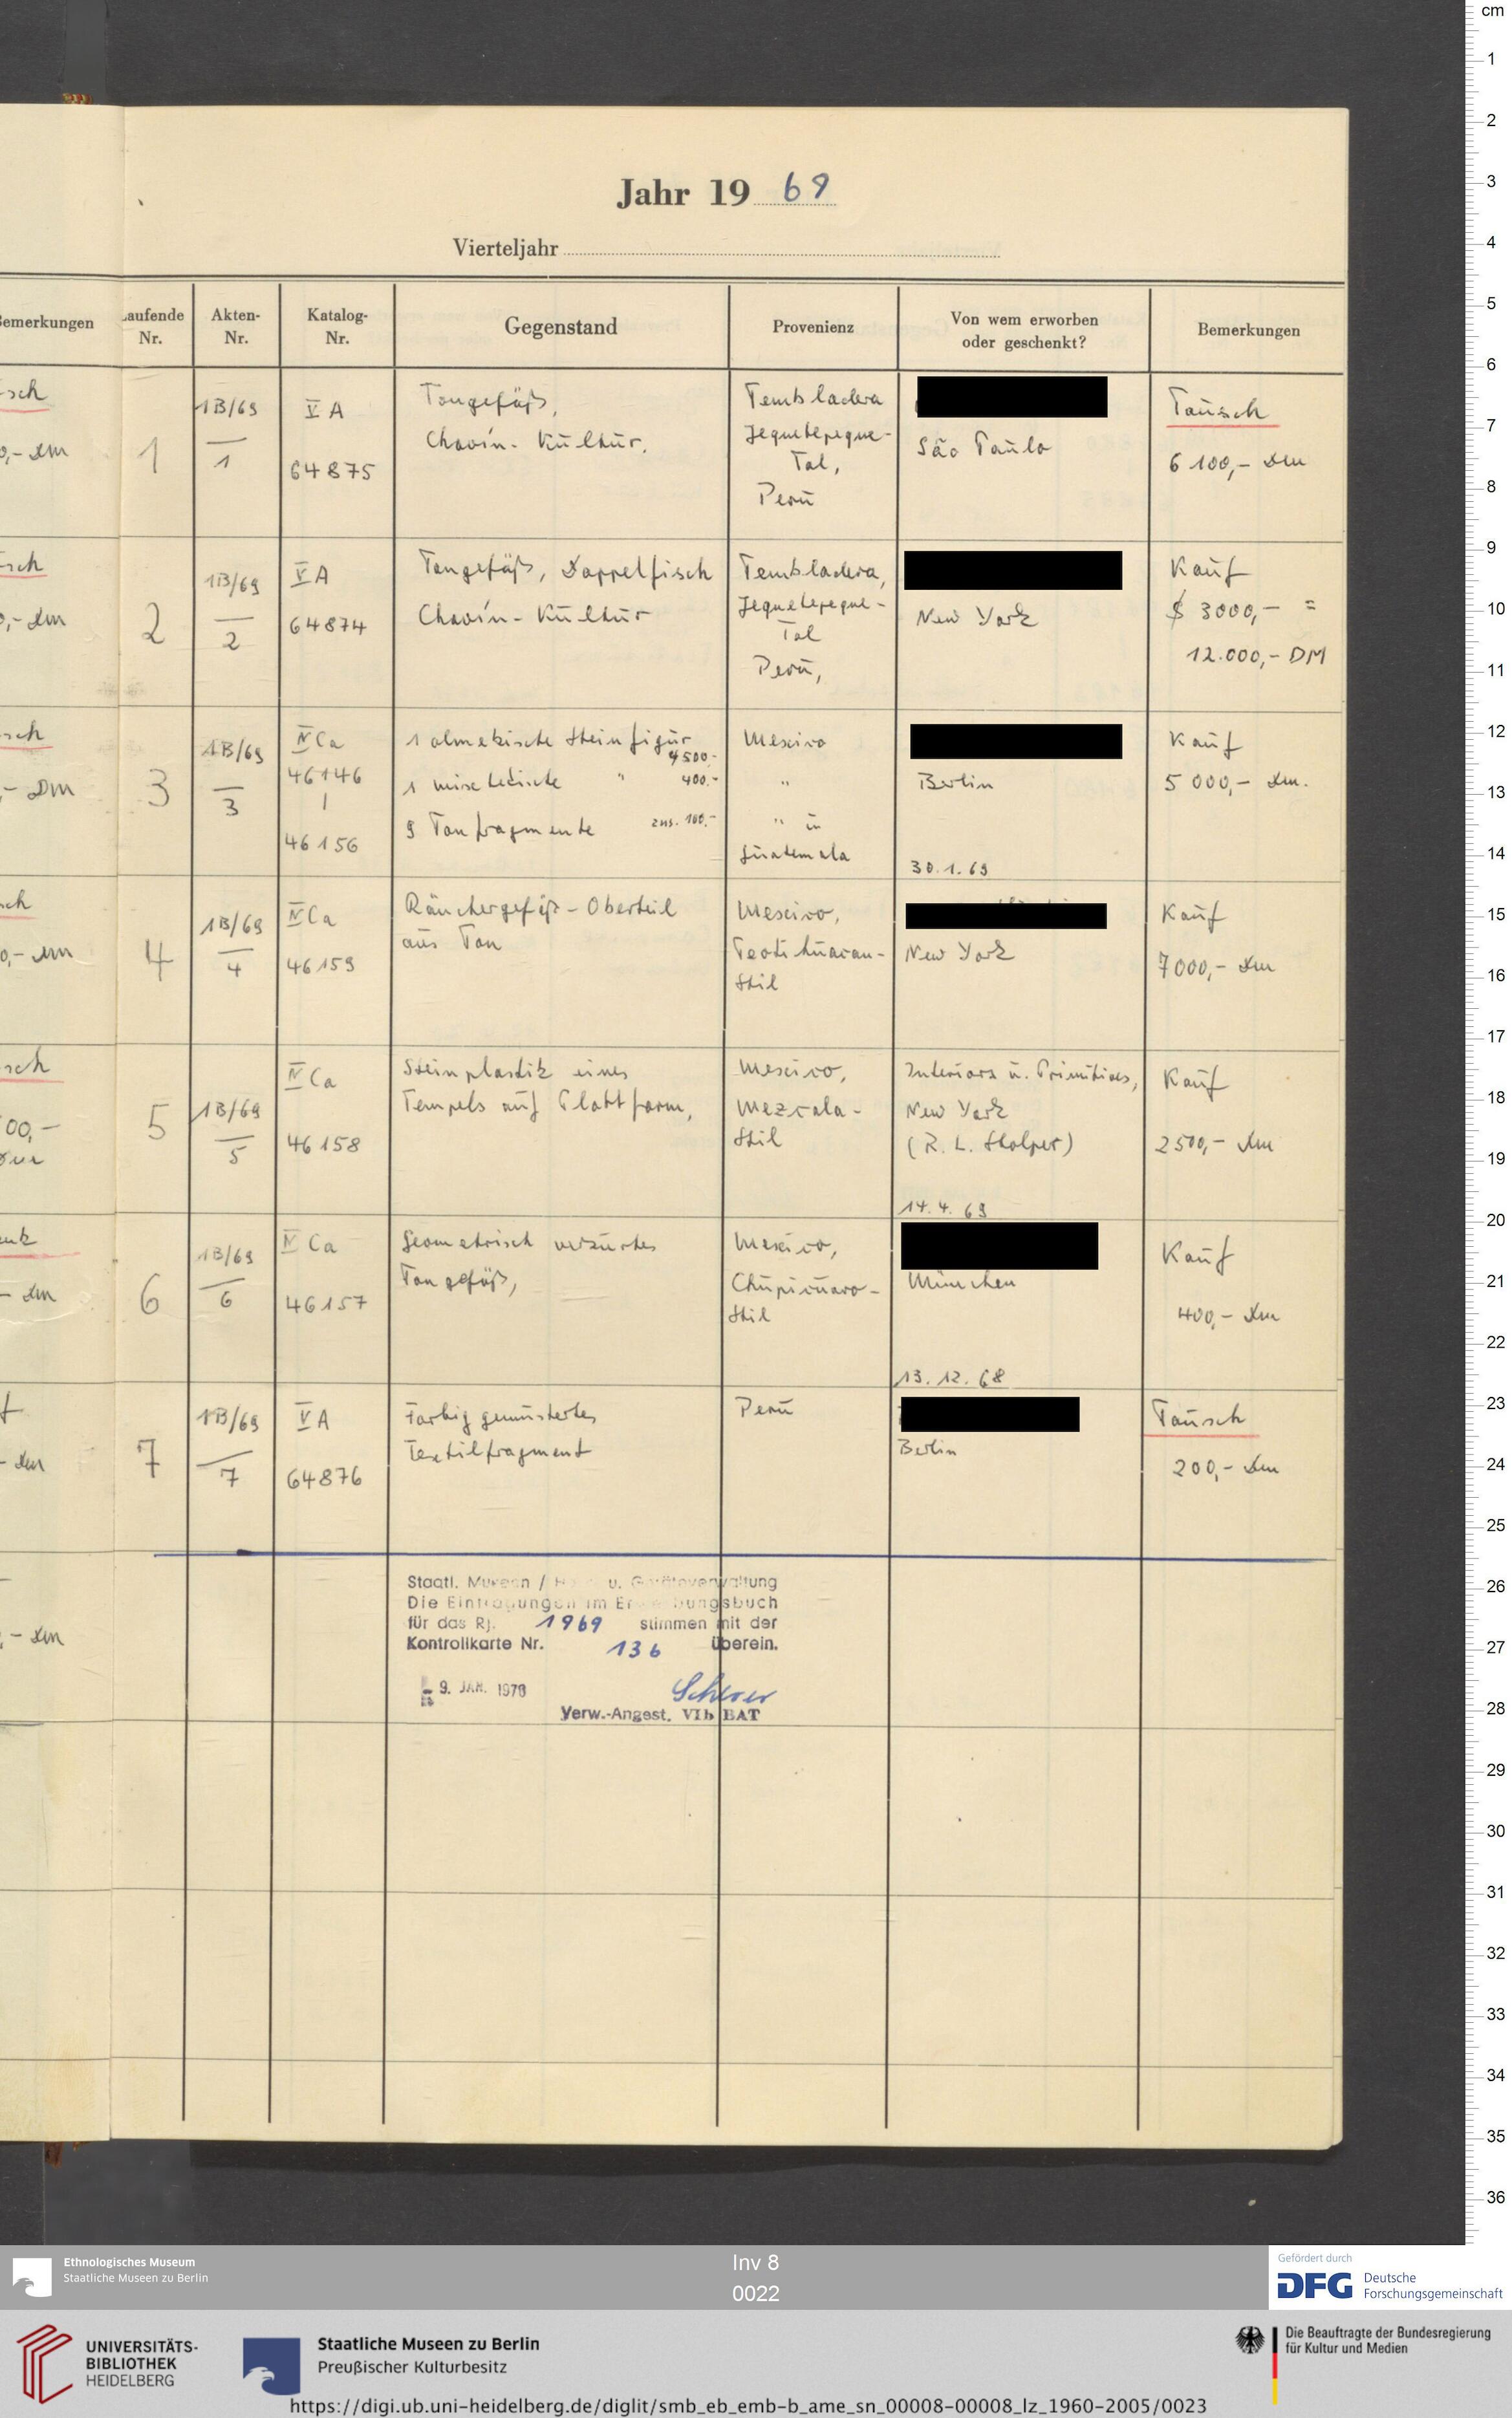 Jahr 19 69
Vierteljahr
Bemerkungen
Laufende Nr.
Akten-Nr.
Katalog-Nr.
Gegenstand
Provenienz
Von wem erworben oder geschenkt?
Bemerkungen
1
1B/69
1
V A
64875
Tongefäß,
Chavín-Kultur.
Tembladera
Jequetepeque-
Tal,
Perú
São Paulo
Tausch
6 100,- DM
2
1B/69
2
V A
64874
Tongefäß, Doppelfisch
Chavín-Kultur
Tembladera,
Jequetepeque-
Tal
Perú,
New York
Kauf
$ 3000,- =
12.000,- DM
3
1B/69
3
IV Ca
46146
|
46156
1 olmekische Steinfigur
4500.-
1 mixtekische " 400.-
9 Tonfragmente zus. 100.-
Mexico
"
" u
Guatemala
Berlin
30.1.69
Kauf
5 000,- DM.
4
1B/69
4
IV Ca
46159
Räuchergefäß-Oberteil
aus Ton
Mexico,
Teotihuacan-
Stil
New York
Kauf
7000,- DM
5
1B/69
5
IV Ca
46158
Steinplastik eines
Tempels auf Plattform,
Mexico,
Mezcala-
Stil
Interiors u. Primitives,
New York
(R. L. Stolper)
14.4.69
Kauf
2500,- DM
6
1B/69
6
IV Ca
46157
Geometrisch verziertes
Tongefäß,
Mexico,
Chupicuaro-
Stil
München
13.12.68
Kauf
400,- DM
7
1B/69
7
V A
64876
Farbig gemustertes
Textilfragment
Perú
Berlin
Tausch
200,- DM
Staatl. Museen / u. Geräteverwaltung
Die Eintragungen im Erwerbungsbuch
für das Rj. 1969 stimmen mit der
Kontrollkarte Nr. 136 überein.
9. JAN. 1970
Verw.-Angest. VIb BAT
cm
1
2
3
4
5
6
7
8
9
10
11
12
13
14
15
16
17
18
19
20
21
22
23
24
25
26
27
28
29
30
31
32
33
34
35
36
Ethnologisches Museum
Staatliche Museen zu Berlin
Inv 8
0022
Gefördert durch
DFG Deutsche
Forschungsgemeinschaft
UNIVERSITÄTS-
BIBLIOTHEK
HEIDELBERG
Staatliche Museen zu Berlin
Preußischer Kulturbesitz
Die Beauftragte der Bundesregierung
für Kultur und Medien
https://digi.ub.uni-heidelberg.de/diglit/smb_eb_emb-b_ame_sn_00008-00008_lz_1960-2005/0023